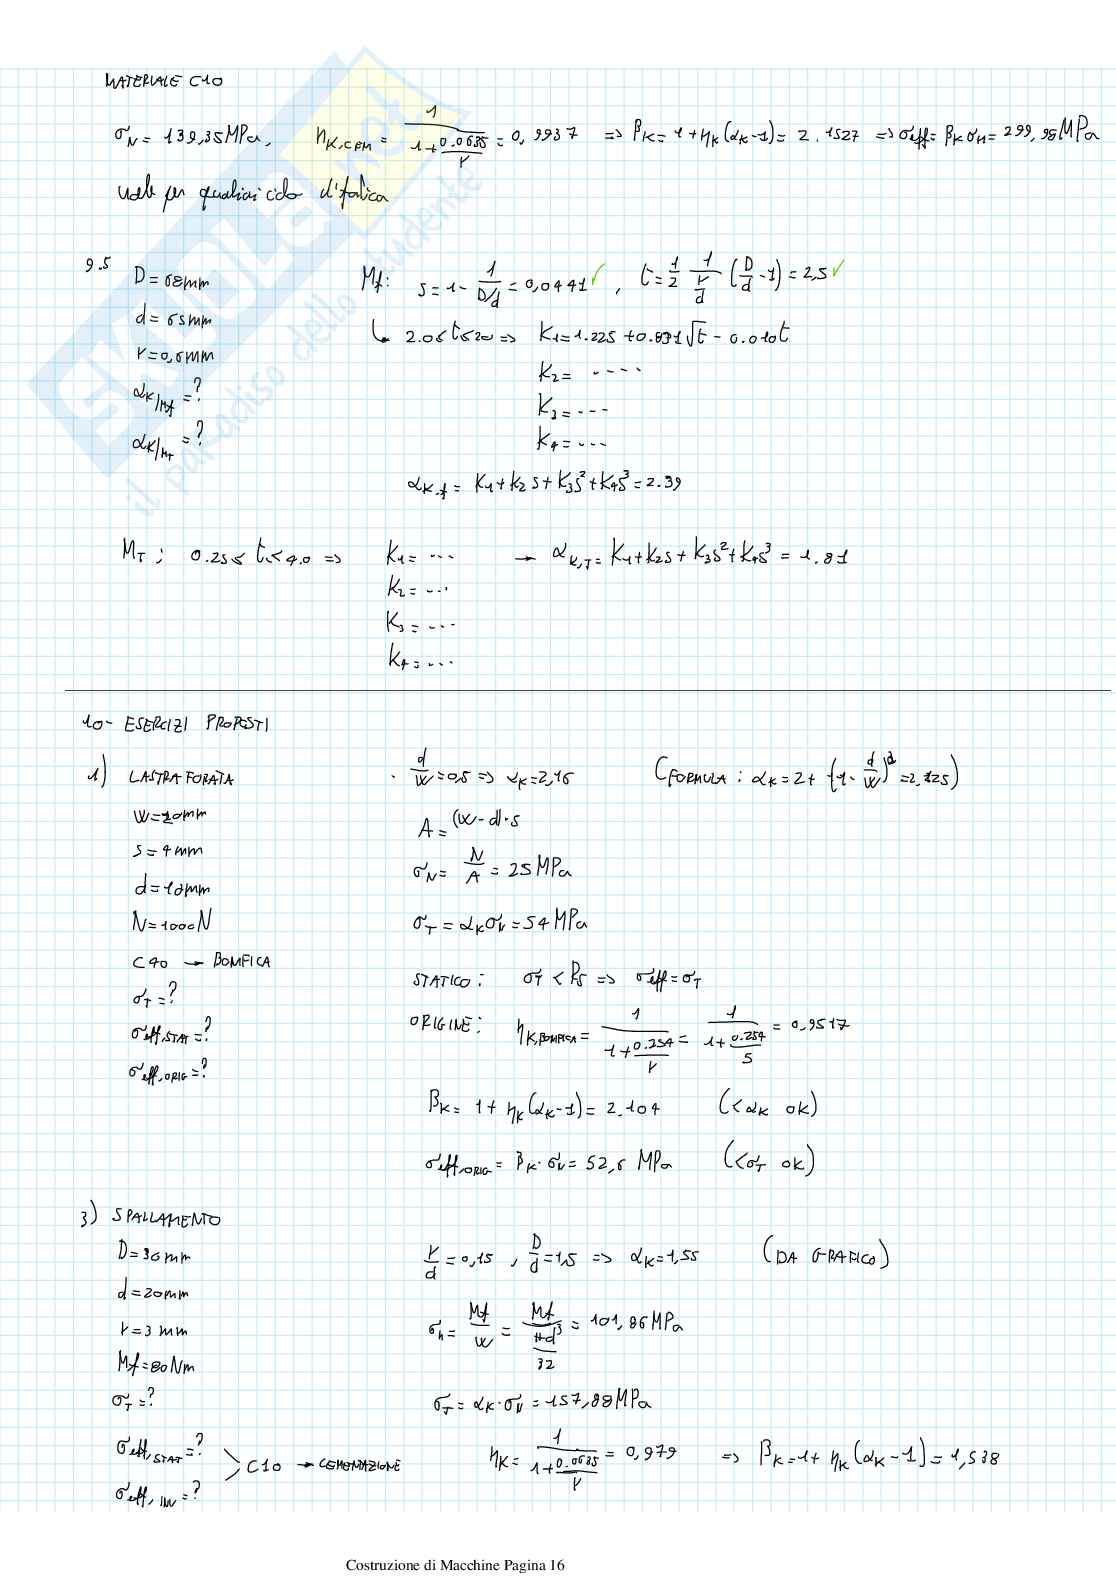 MATERIALE C10
σN = 139,35 MPa, ηK,CEM = 1/(1+0.0635/r) = 0,9937 => βK = 1+ηK(αK-1) = 2.1527 => σeff = βK σN = 299,98 MPa
vale per qualsiasi ciclo d'fatica
9.5
D = 68mm
d = 65mm
r = 0,6mm
αK/Mf = ?
αK/MT = ?
Mf: s = 1 - 1/(D/d) = 0,0441 ✓, t = 1/2 1/(r/d) (D/d -1) = 2,5 ✓
↳ 2.0 ≤ t ≤ 20 => K1 = 1.225 + 0.831√t - 0.010t
K2 = ....
K3 = ...
K4 = ...
αK,f = K1+K2 s+K3s²+K4s³ = 2.39
MT: 0.25 ≤ t ≤ 4.0 => K1 = ... → αK,T = K1+K2s+K3s²+K4s³ = 1.81
K2 = ...
K3 = ...
K4 = ...
10- ESERCIZI PROPOSTI
1) LASTRA FORATA
W = 20mm
s = 4mm
d = 10mm
N = 1000N
C40 → BONIFICA
σT = ?
σeff,STAT = ?
σeff,ORIG = ?
d/W = 0,5 => αK = 2,16 (FORMULA: αK = 2+(1-d/W)³ = 2.125)
A = (W-d)·s
σN = N/A = 25 MPa
σT = αKσN = 54 MPa
STATICO: σT < Rs => σeff = σT
ORIGINE: ηK,BONIFICA = 1/(1+0.254/r) = 1/(1+0.254/5) = 0,9517
βK = 1+ηK(αK-1) = 2.104 (<αK OK)
σeff,ORIG = βK·σN = 52,6 MPa (<σT OK)
3) SPALLAMENTO
D = 30mm
d = 20mm
r = 3mm
Mf = 80Nm
σT = ?
σeff,STAT = ?
σeff, IN = ?
C10 → CEMENTAZIONE
r/d = 0,15, D/d = 1,5 => αK = 1,55 (DA GRAFICO)
σn = Mf/W = Mf/(πd³/32) = 101,86 MPa
σT = αK·σN = 157,88 MPa
ηK = 1/(1+0.0635/r) = 0,979 => βK = 1+ηK(αK-1) = 1,538
SKUOLA.net
il paradiso dello studente
Costruzione di Macchine Pagina 16